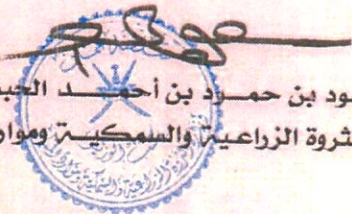 ـود بن حمـــود بن أحمـــد الحبـ
ـثروة الزراعية والسمكية وموار